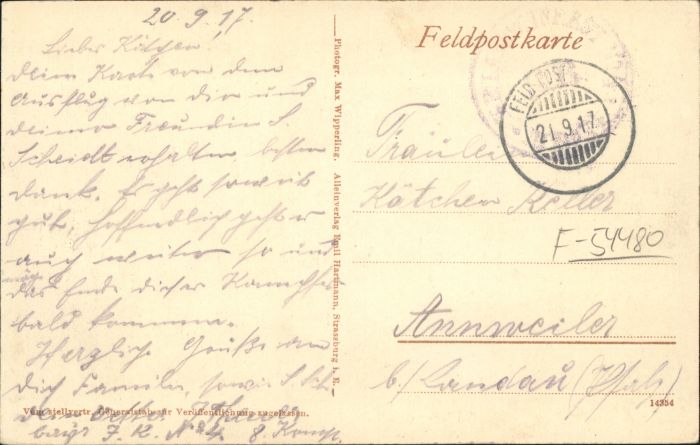 20.9.17.
Liebes Kätchen.
Deine Karte von dem
Ausflug von dir und
deiner Freundin S.
Scheidt erhalten, besten
Dank. Es geht soweit
gut, hoffendlich geht es
auch weiter so und
möge
das Ende dieser Kämpfe
bald kommen.
Herzliche Grüße an
dich Familie, sowie S. Sch.
dein
bayr. J. R. No 4. 8. Komp.
Vom stellvertr. Generalstab zur Veröffentlichung zugelassen.
Photogr. Max Wipperling. Alleinverlag Emil Hartmann, Strassburg i. E.
Feldpostkarte
FELDPOST
21.9.17.
Fräulein
Kätchen Keller
F-54480
Annweiler
b/ Landau (Pfalz)
14354